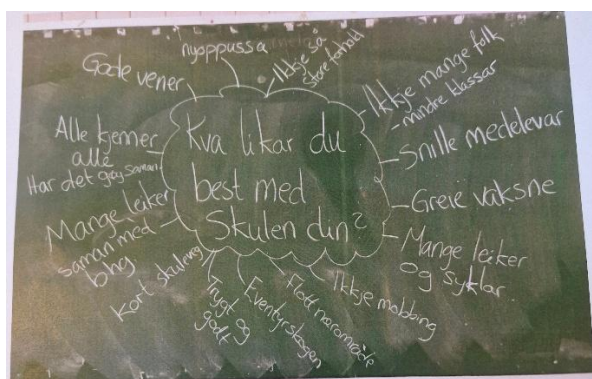 Kva likar du
best med
Skulen din?
nyoppussa
Ikkje så
store forhold
Ikkje mange folk
- mindre klassar
Snille medelevar
Greie vaksne
Mange leiker
og syklar
Ikkje mobbing
Flott nærområde
Eventyrskogen
Trygt og
godt
Kort skuleveg
Mange leiker
saman med
bhg
Alle kjenner
alle
Har det gøy saman
Gode vener